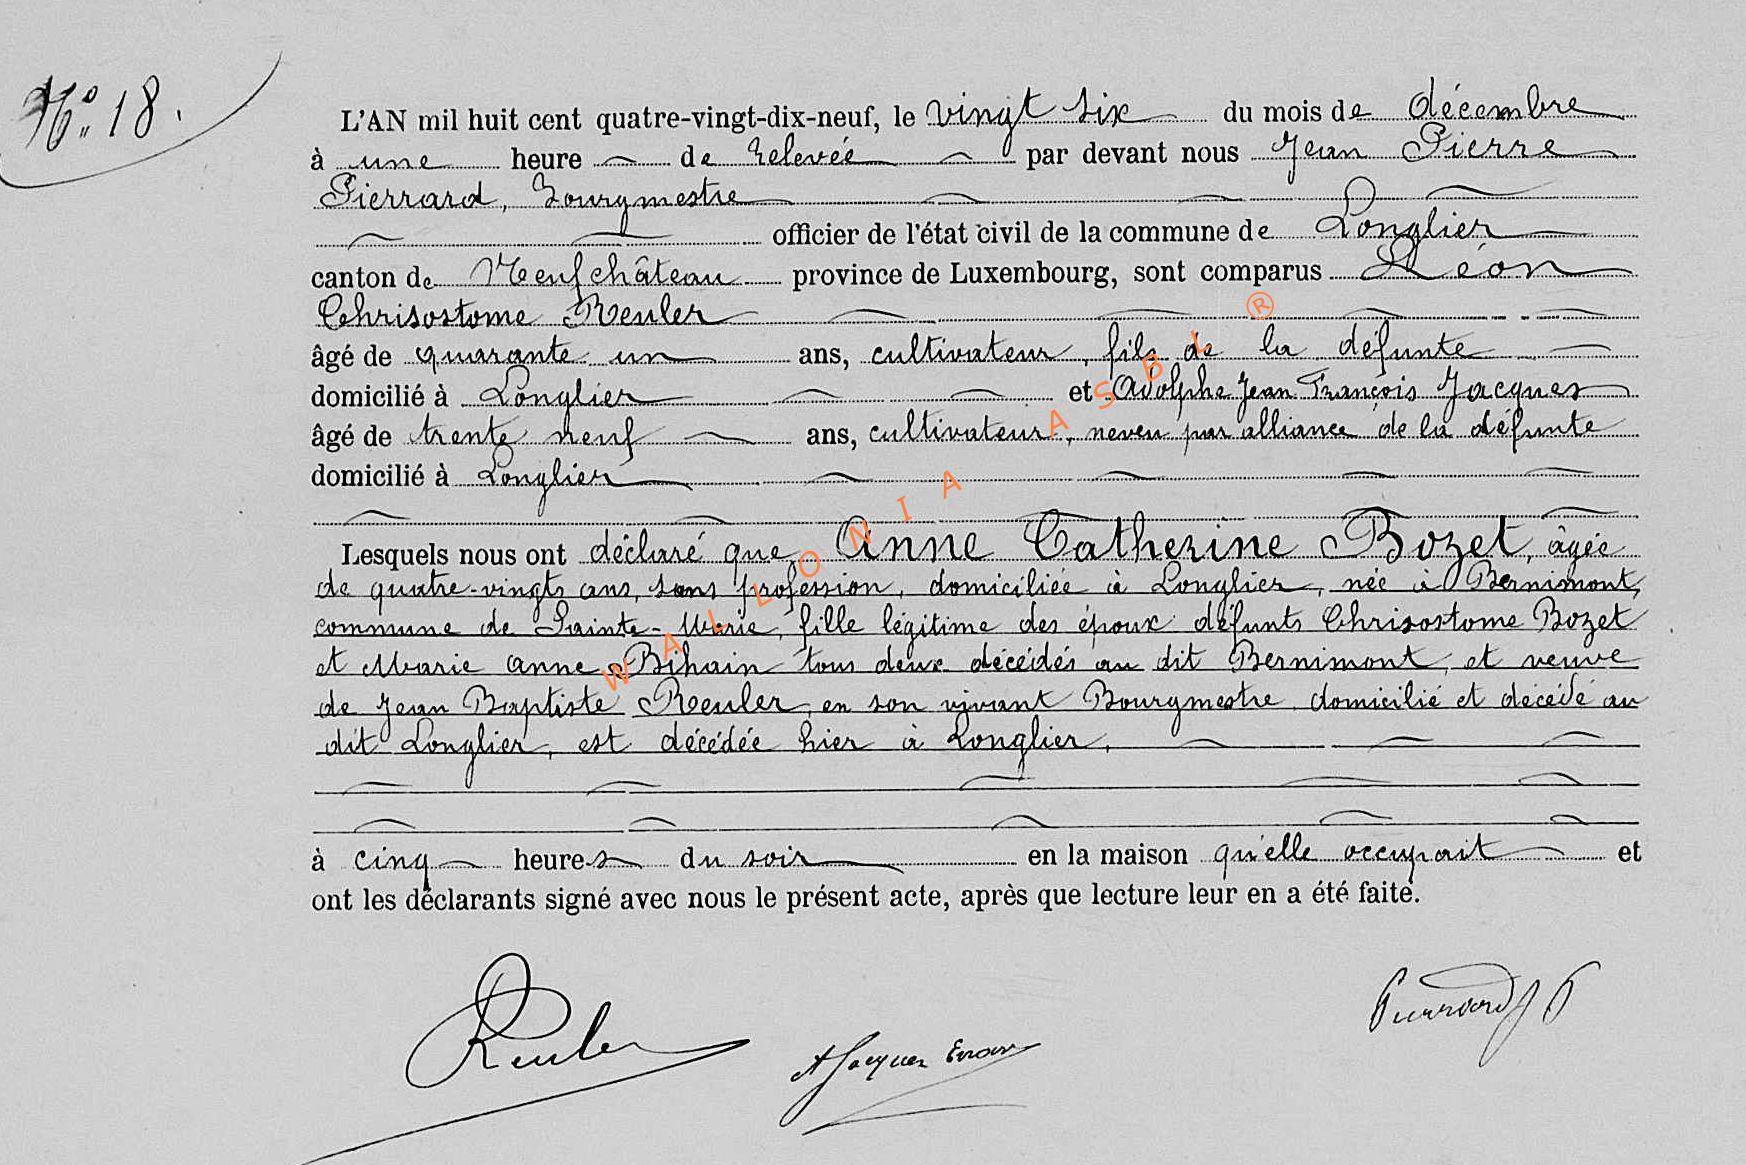 No. 18.
L'AN mil huit cent quatre-vingt-dix-neuf, le vingt six du mois de décembre
à une heure de relevée par devant nous Jean Pierre
Pierrard, bourgmestre
officier de l'état civil de la commune de Longlier
canton de Neufchâteau province de Luxembourg, sont comparus Léon
Chrisostome Reuler
âgé de quarante un ans, cultivateur, fils de la défunte
domicilié à Longlier et Adolphe Jean François Jacques
âgé de trente neuf ans, cultivateur, neveu par alliance de la défunte
domicilié à Longlier
Lesquels nous ont déclaré que Anne Catherine Bozet, âgée
de quatre-vingts ans, sans profession, domiciliée à Longlier, née à Bernimont,
commune de Sainte-Marie, fille légitime des époux défunts Chrisostome Bozet
et Marie Anne Bihain tous deux décédés au dit Bernimont, et veuve
de Jean Baptiste Reuler, en son vivant Bourgmestre domicilié et décédé au
dit Longlier, est décédée hier à Longlier,
à cinq heures du soir en la maison qu'elle occupait et
ont les déclarants signé avec nous le présent acte, après que lecture leur en a été faite.
Reuler A Jacques Pierrard J P
WALLONIA ASBL ®